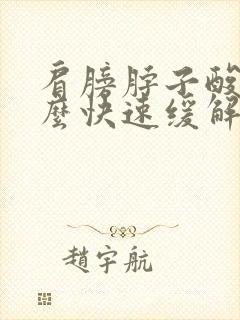 肩膀脖子酸
麼快速緩解
趙宇航